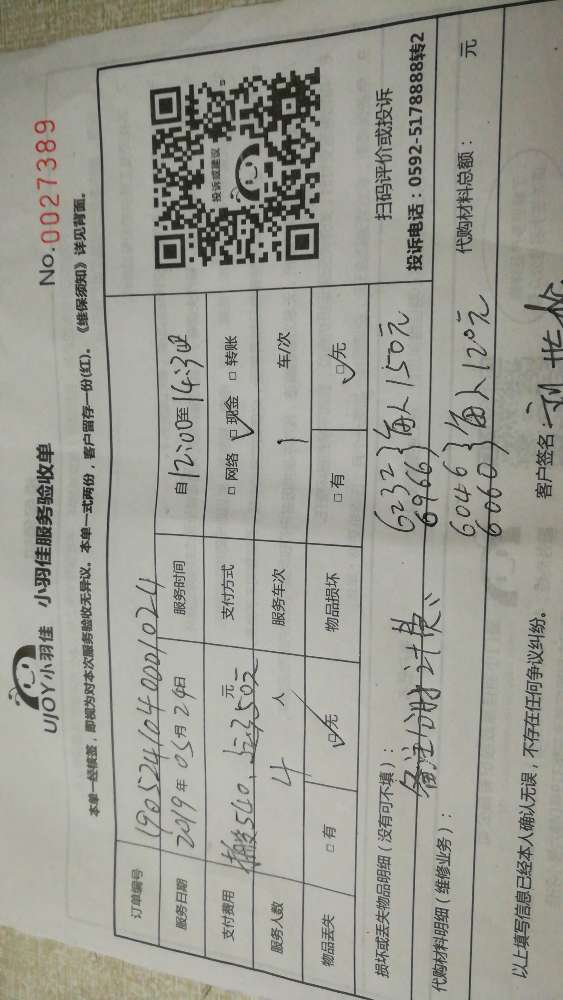 UJOY小羽佳 小羽佳服务验收单
No.0027389
本单一经核签，即视为对本次服务验收无异议。本单一式两份，客户留存一份(红)。《维保须知》详见背面。
订单编号 1905241040001024
服务日期 2019年05月24日 服务时间 自12:00至14:30
支付费用 540、350元 支付方式 □网络 □现金 □转账
服务人数 4 人 服务车次 1 车/次
物品丢失 □有 □无 物品损坏 □有 □无
投诉或建议
扫码评价或投诉
投诉电话：0592-5178888转2
损坏或丢失物品明细（没有可不填）：
备注分时计费
6232 } 每人150元
6966
6046 } 每人120元
6060
代购材料明细（维修业务）： 代购材料总额： 元
以上填写信息已经本人确认无误，不存在任何争议纠纷。 客户签名：